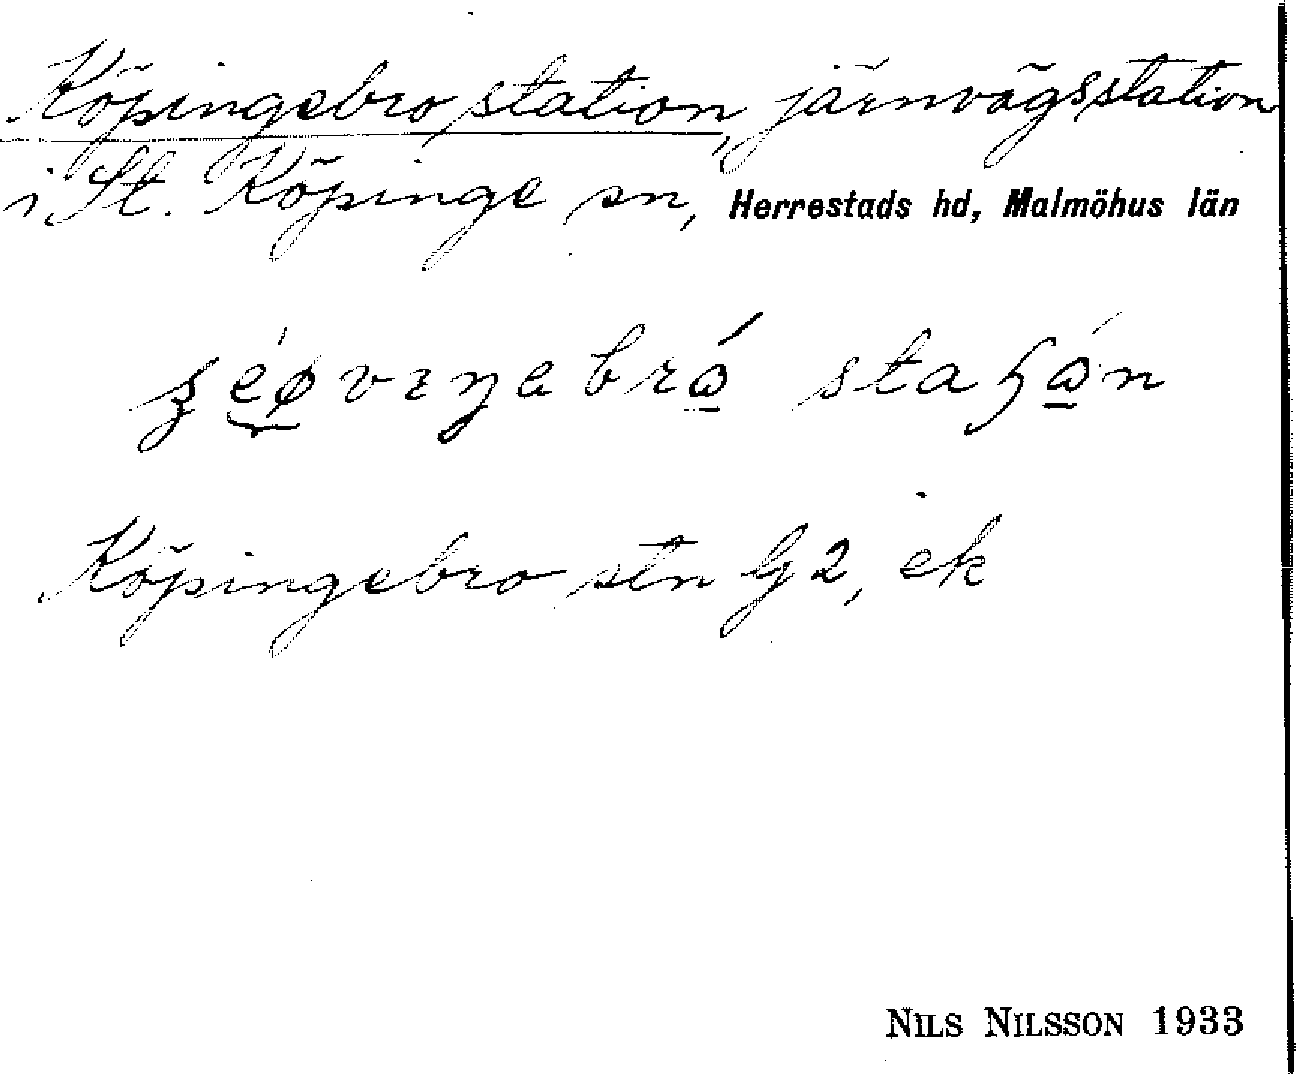 Köpingebro station, järnvägsstation
i St. Köpinge sn, Herrestads hd, Malmöhus län
Köpingebro stn G2, ek
NILS NILSSON 1933